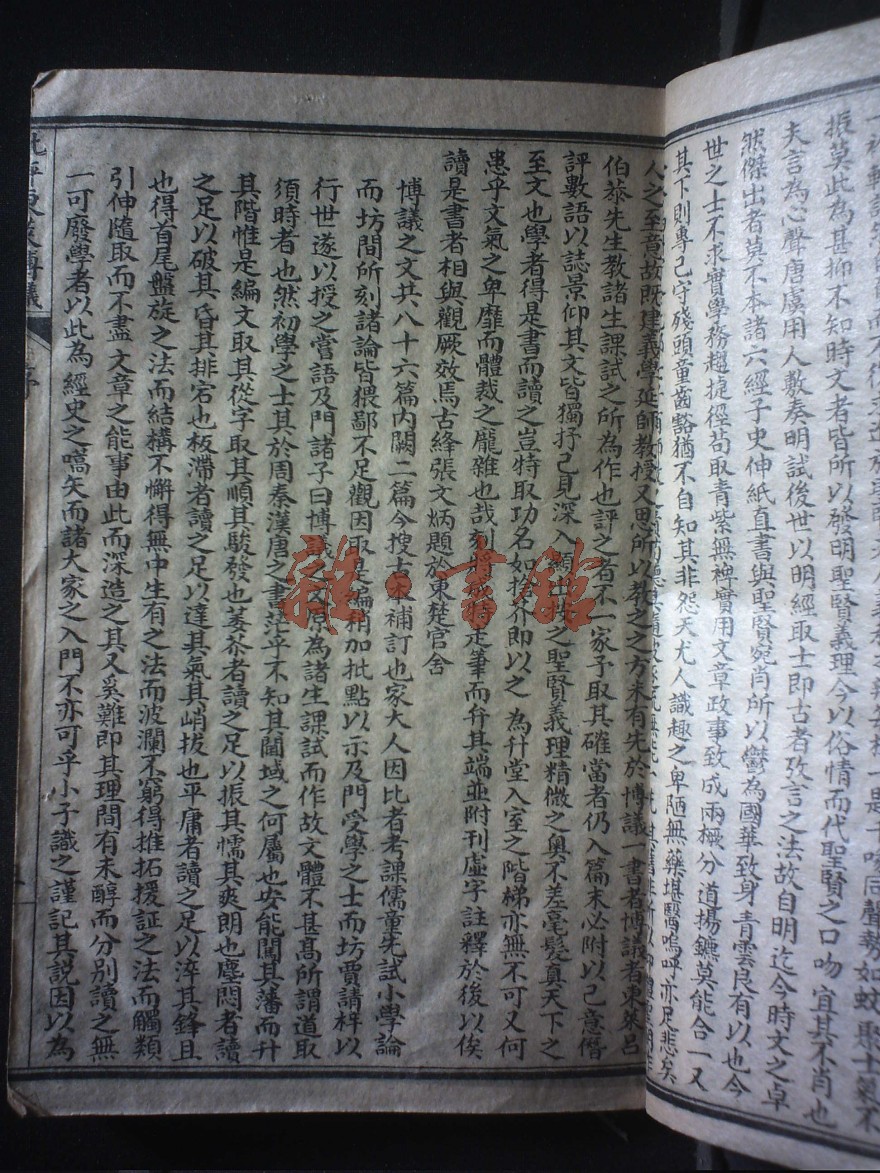 振莫此為甚抑不知時文者皆所以發明聖賢義理今以俗情而代聖賢之口吻宜其不肖也
夫言為心聲唐虞用人敷奏明試後世以明經取士即古者攷言之法故自明迄今時文之卓
然傑出者莫不本諸六經子史伸紙直書與聖賢宛肖所以鬱為國華致身青雲良有以也今
世之士不求實學務趨捷徑茍取青紫無裨實用文章政事致成兩橛分道揚鑣莫能合一又
其下則專己守殘頭童齒豁猶不自知其非怨天尤人識趣之卑陋無藥堪醫嗚呼亦足悲矣
人之至意故既建義學延師教授又思所以教之之方未有先於博議一書者博議者東萊呂
伯恭先生教諸生課試之所為作也評之者不一家予取其確當者仍入篇末必附以己意僭
評數語以誌景仰其文皆獨抒己見深入顯出於之聖賢義理精微之奧不差毫髮真天下之
至文也學者得是書而讀之豈特取功名如拾芥即以之為升堂入室之階梯亦無不可又何
患乎文氣之卑靡而體裁之龐雜也哉刻走筆而弁其端並附刊虛字註釋於後以俟
讀是書者相與觀厥效焉古絳張文炳題於東楚官舍
博議之文共八十六篇内闕二篇今搜古本補訂也家大人因比者考課儒童先試小學論
而坊間所刻諸論皆猥鄙不足觀因取是編稍加批點以示及門受學之士而坊賈請梓以
行世遂以授之嘗語及門諸子曰博議之文原為諸生課試而作故文體不甚高所謂道取
須時者也然初學之士其於周秦漢唐之書茫乎不知其閫域之何屬也安能闖其藩而升
其階惟是編文取其從字取其順其駿發也萎苶者讀之足以振其懦其爽朗也塵悶者讀
之足以破其昏其排宕也板滯者讀之足以達其氣其峭拔也平庸者讀之足以淬其鋒且
也得首尾盤旋之法而結構不懈得無中生有之法而波瀾不窮得推拓援証之法而觸類
引伸隨取而不盡文章之能事由此而深造之其又奚難即其理間有未醇而分別讀之無
一可廢學者以此為經史之嚆矢而諸大家之入門不亦可乎小子識之謹記其説因以為
雜·書館